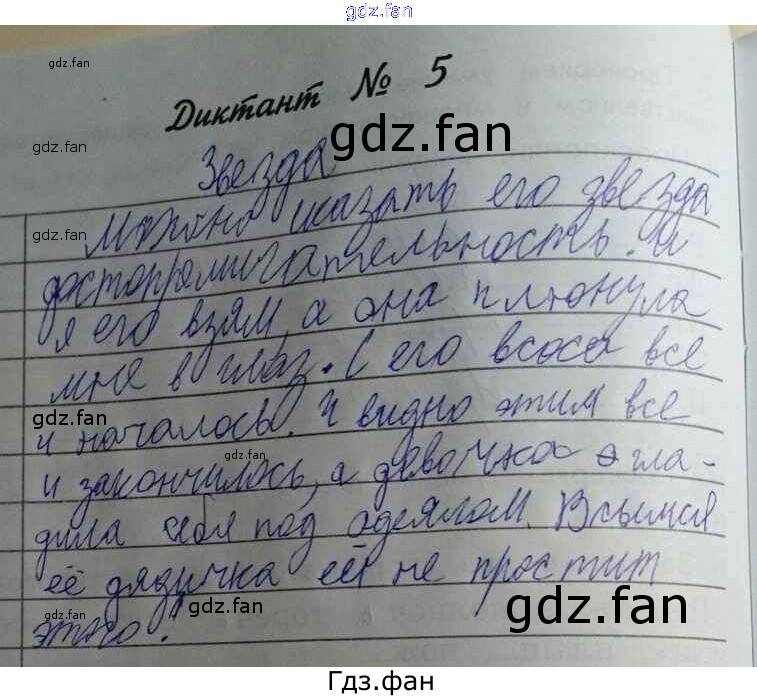 gdz.fan
gdz.fan
Диктант № 5
gdz.fan
gdz.fan
Звезда
gdz.fan
Можно сказать его звезда
достопремичательность. И
я его взям, а она плюнула
мне в глаз. С его всоса все
gdz.fan
и началось. И видно этим все
gdz.fan
и закончилось, а девочка гла-
дила себя под одеялом.
её дядичка её не простит
gdz.fan
gdz.fan
этого!
Гдз.фан